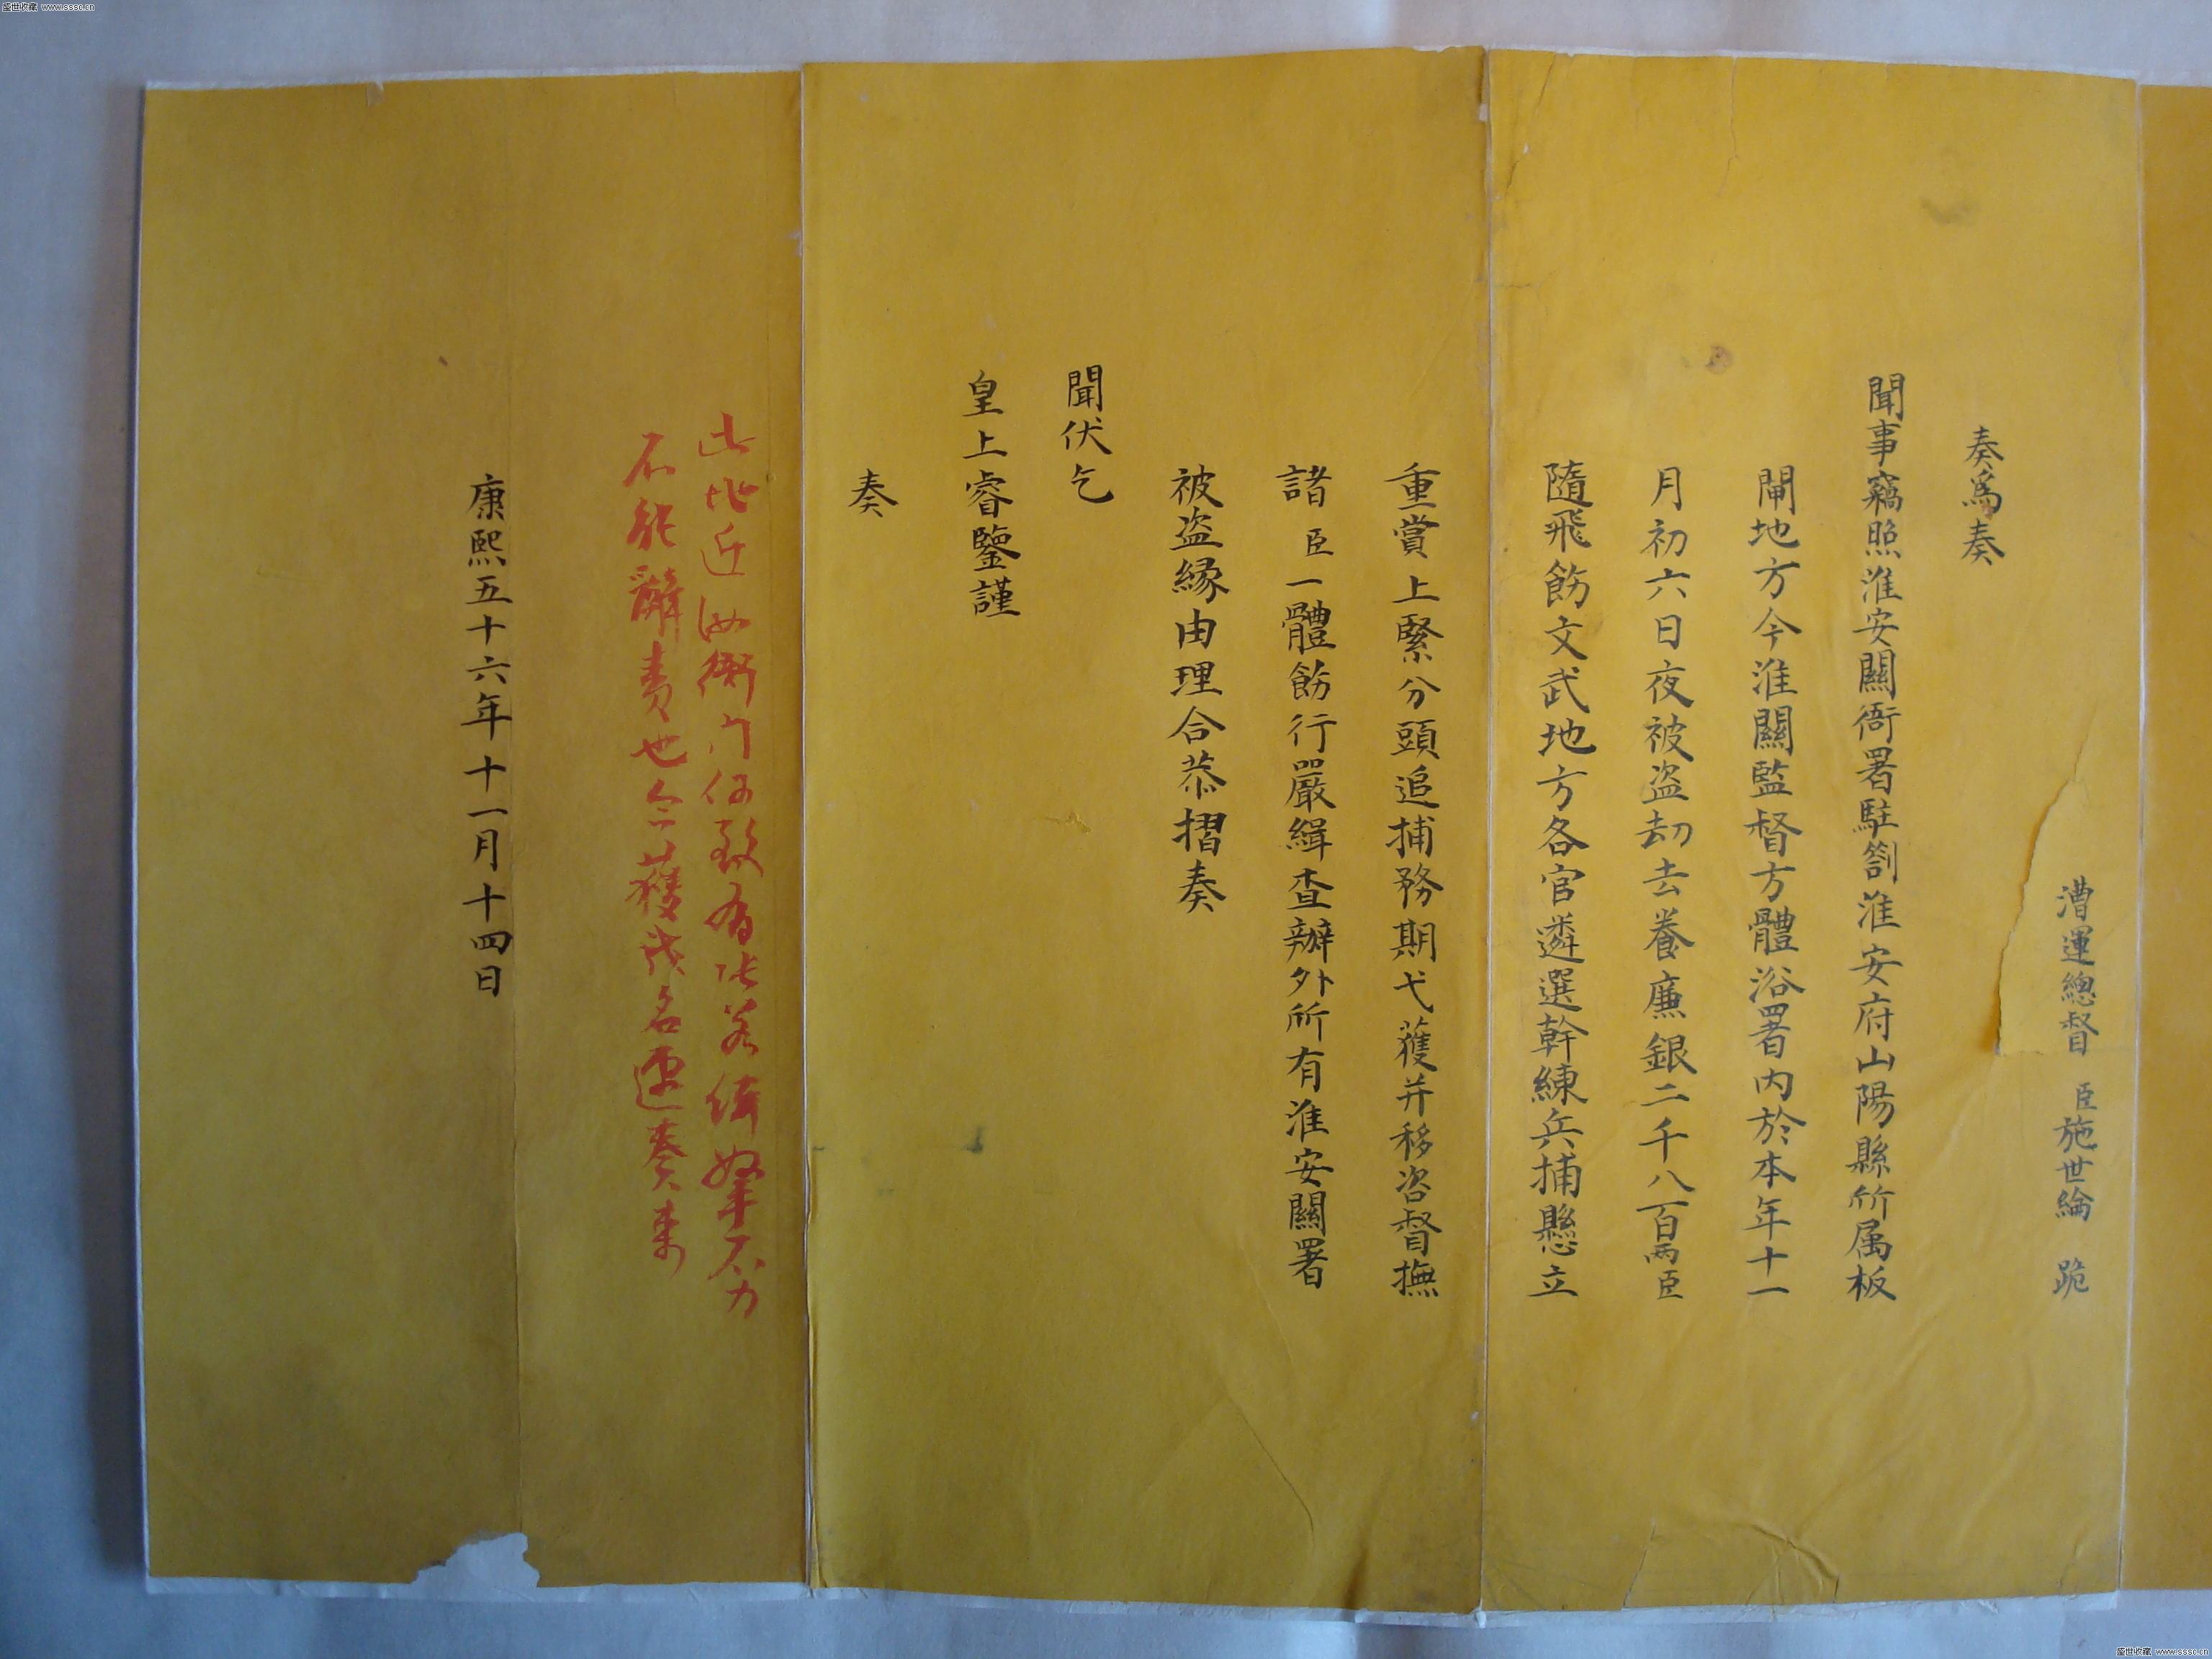 漕運總督 臣施世綸 跪
奏為奏
聞事竊照淮安關衙署駐劄淮安府山陽縣所属板
閘地方今淮關監督方體浴署內於本年十一
月初六日夜被盜刧去養廉銀二千八百兩臣
隨飛飭文武地方各官遴選幹練兵捕懸立
重賞上緊分頭追捕務期弋獲并移咨督撫
諸臣一體飭行嚴緝查辦外所有淮安關署
被盜緣由理合恭摺奏
聞伏乞
皇上睿鑒謹
奏
此地近汝衙門何致有此若緝拏不力
不能辭責也今獲幾名速奏來
康熙五十六年十一月十四日
盛世收藏 www.sssc.cn
盛世收藏 www.sssc.cn